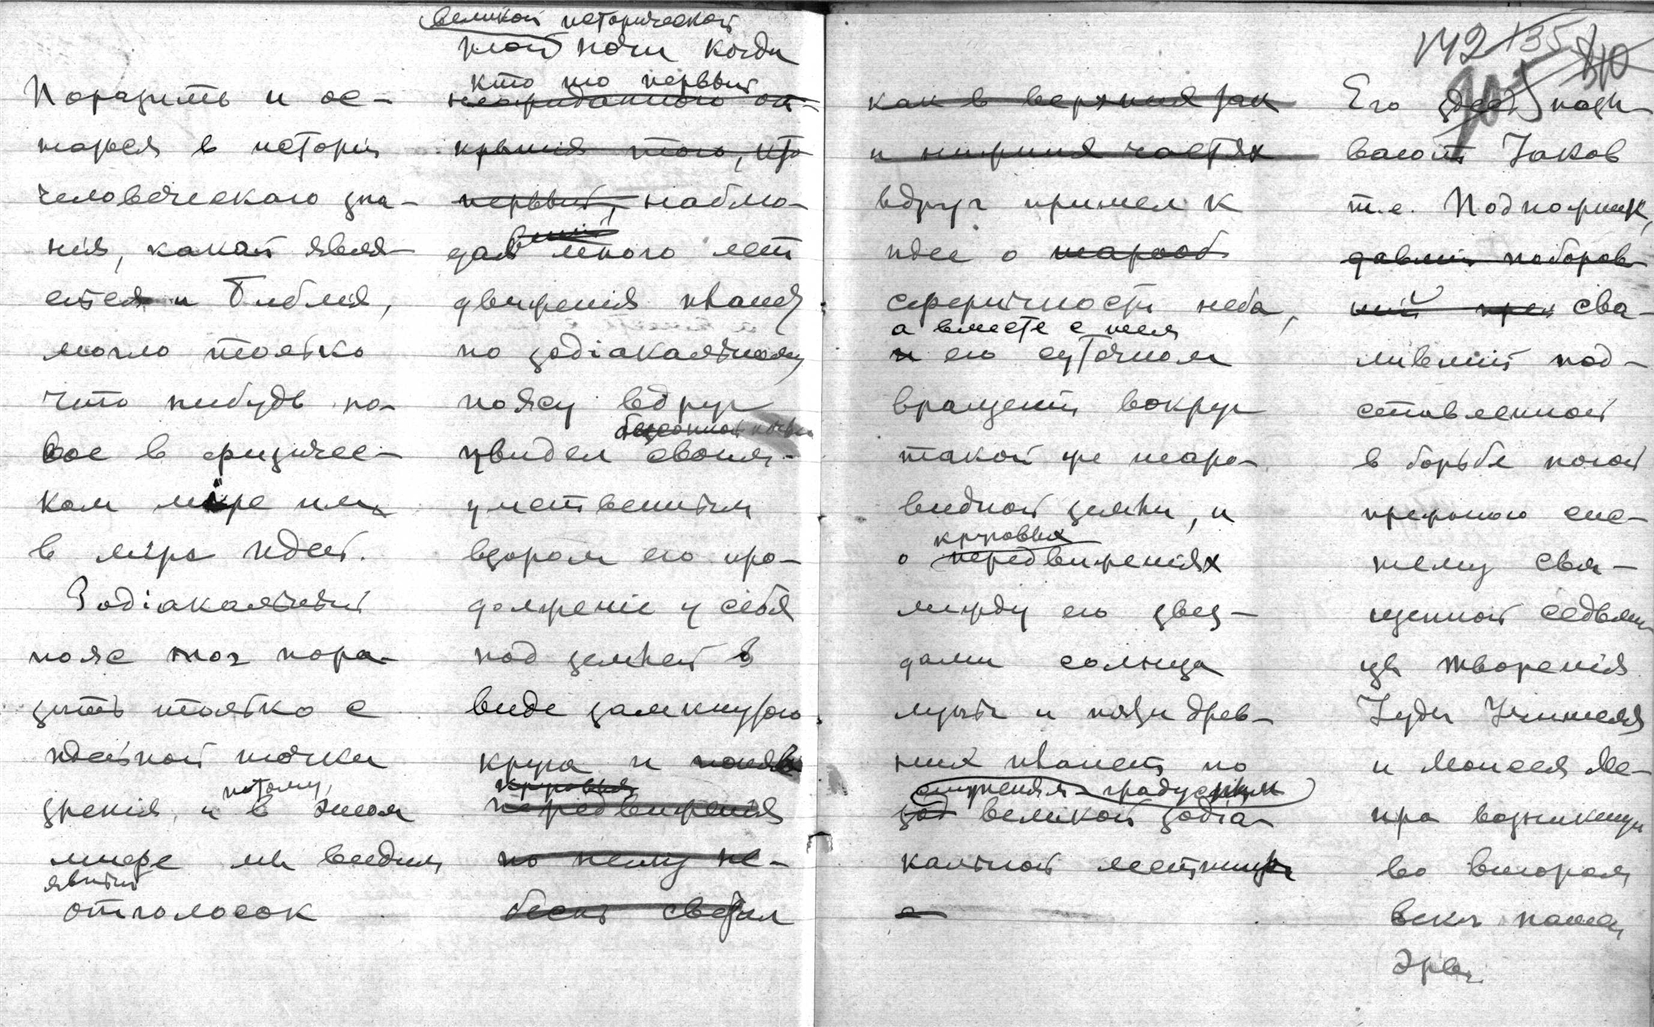 Поразить и ос-
таться в исторіи
человѣческаго зна-
нія, какой явля-
ется и Библія,
могло только
что нибудь но-
вое в физичес-
ком мире или
в мірѣ идей.
Зодіакальный
пояс мог пора-
зить только с
идейной точки
зрѣнія, и
потому
в этом
мифѣ мы видим
явный
отголосок
великой исторической
той ночи когда
кто то первый
неожиданного от-
крытія того, что
первый, наблю-
дав
шій
много лет
движенія планет
по зодіакальному
поясу вдруг
безсонной ночью
увидел своим
умственным
взором его про-
долженіе у себя
под землей в
виде замкнутого
круга и
круговыя
передвиженія
по нему не-
бесных светил
142 135
как в верхних
и нижних частях
вдруг пришел к
идее о шарооб
сферичности неба,
а вместе с тем
и его суточном
вращеніи вокруг
такой же шаро-
видной земли, и
круговых
о передвиженіях
между его звез-
дами солнца
луны и пяти древ-
них планет по
ступеням-градусам
зод великой зодіа-
кальной лестницы
Его здесь назы-
вают Іаков
т.е. Подножник,
давшій поборов-
шій сва-
лившій под-
ставленной
в борьбе ногой
прежнюю сис-
тему свя-
щенной седьми-
цы творенія
Іуды Учителя
и Моисея Ме-
ира возникшую
во втором
веке нашей
эры.